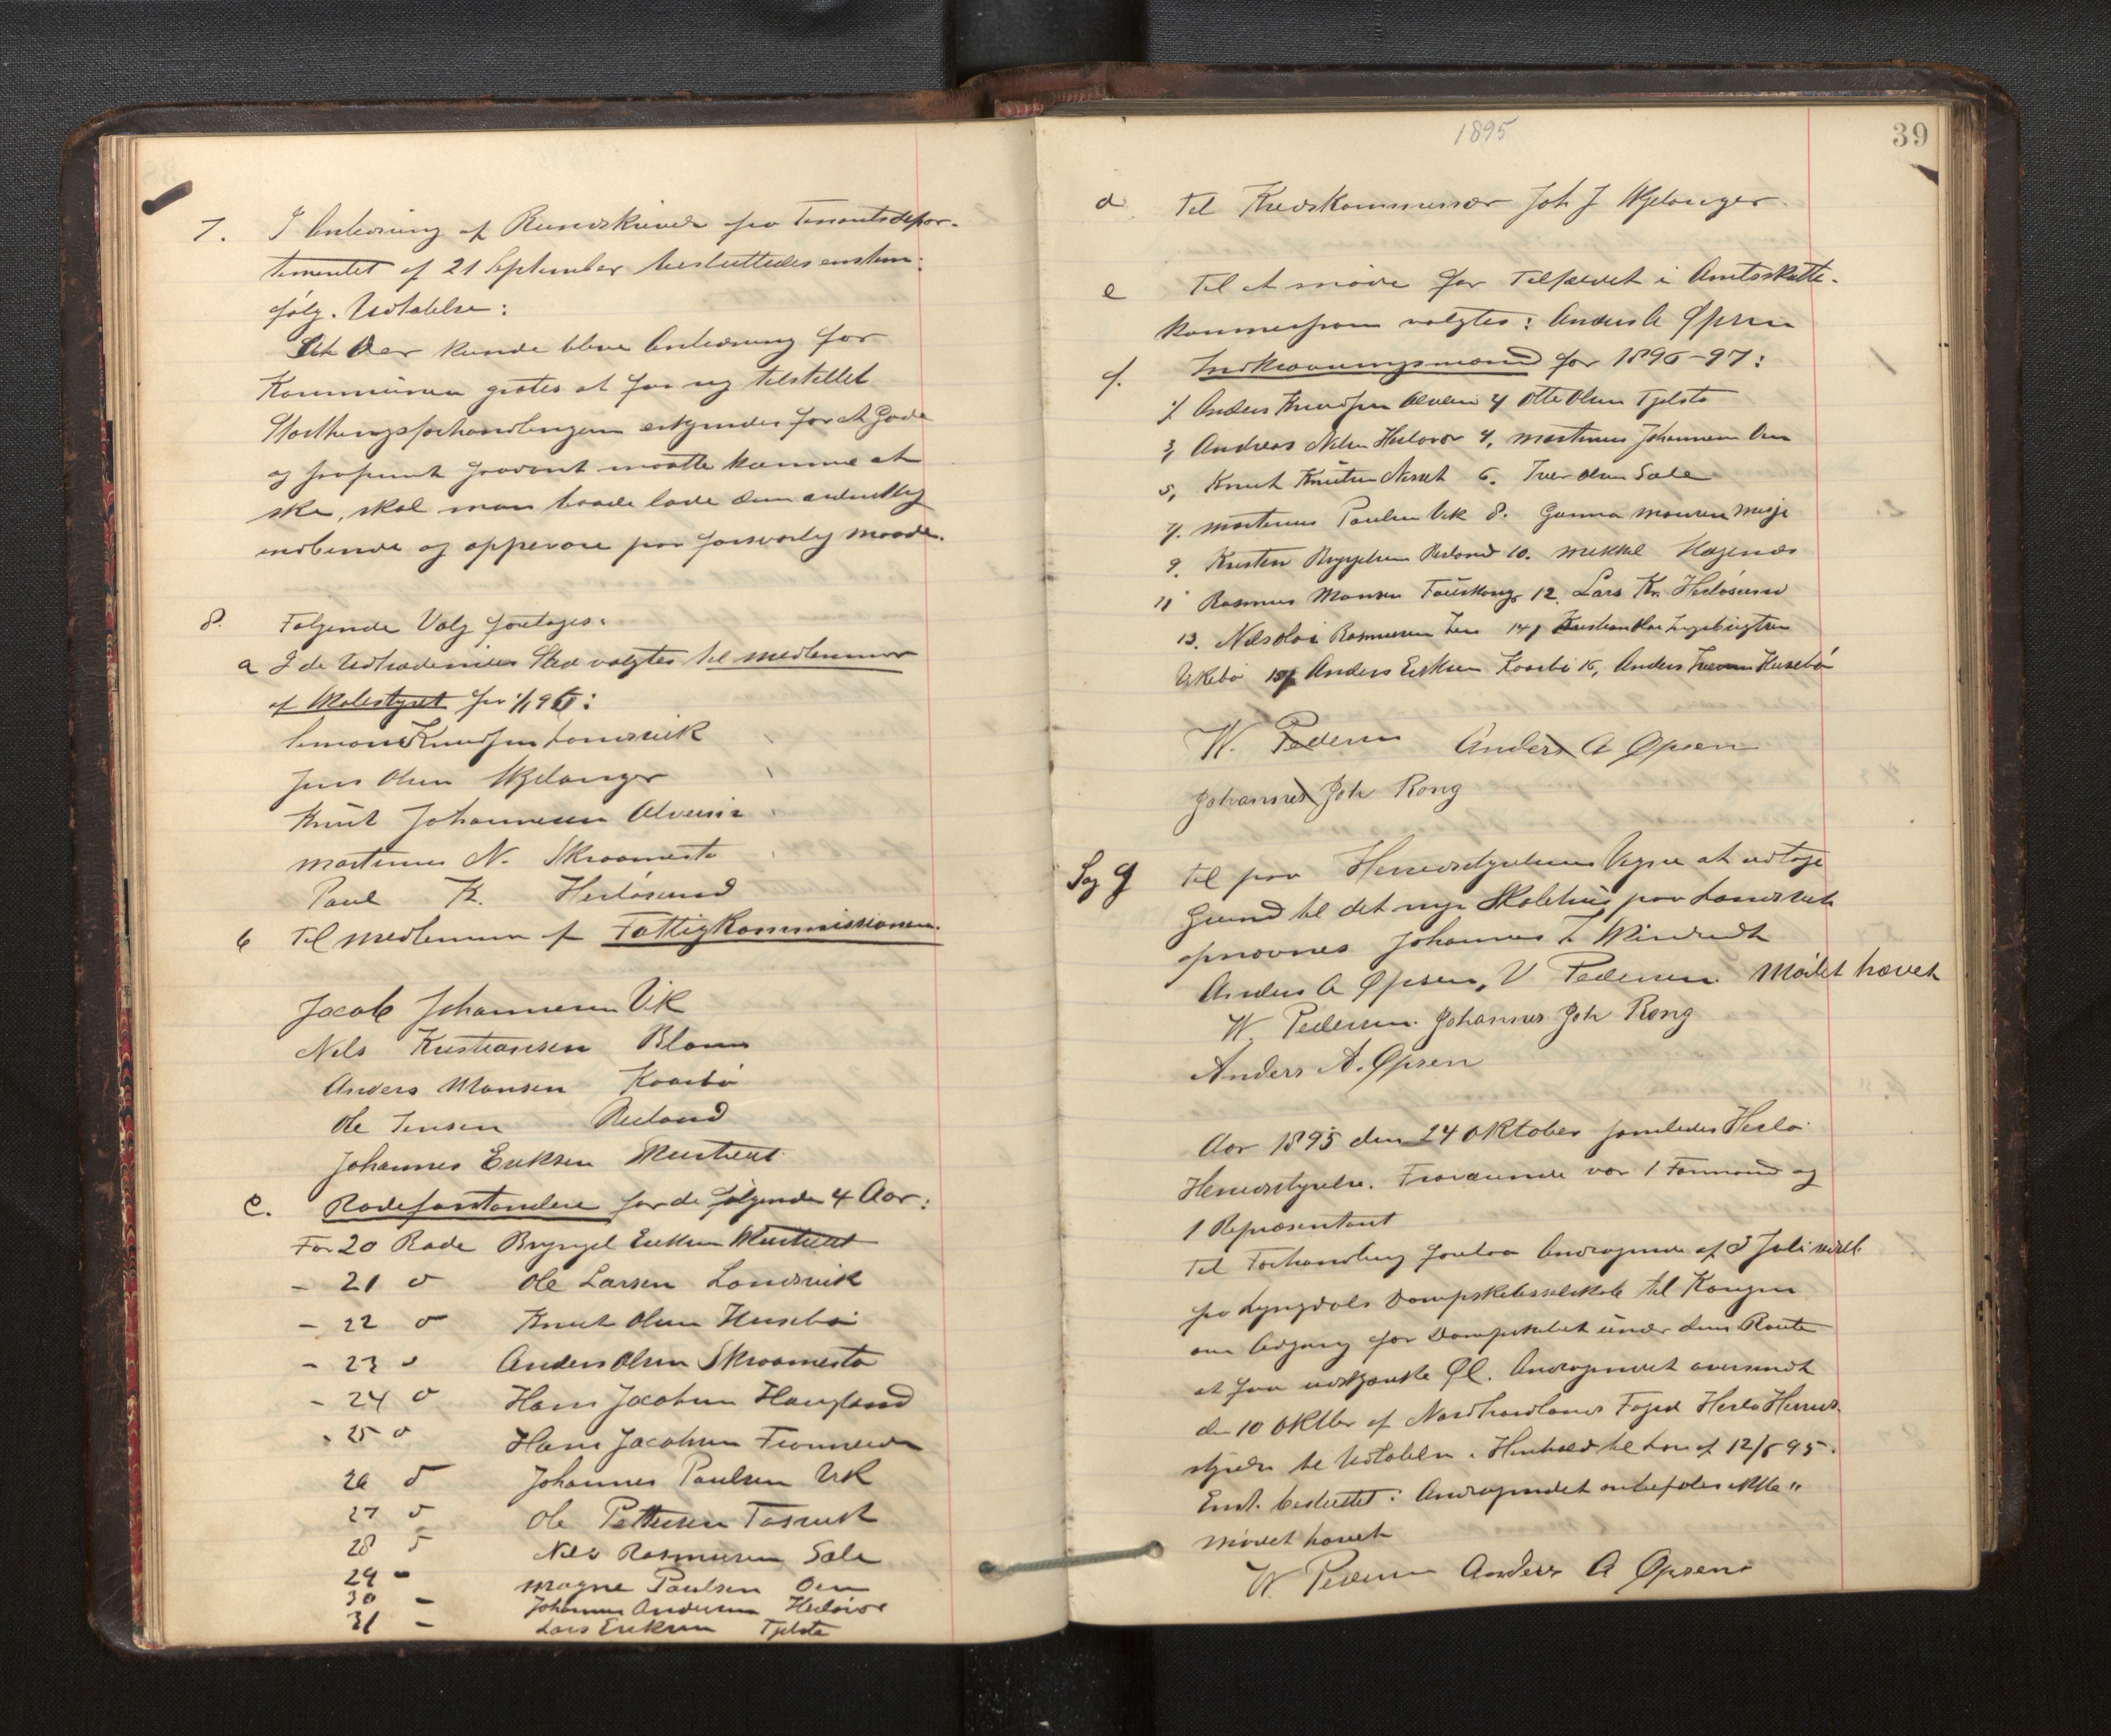 7. I Anledning af Rundskrivelse fra Finantsdepar-
tementet af 21 September besluttedes enstem:
følg. Udtalelse:
Der kunde blive Anledning for
Kommunen gratis at faa sig tilstillet
Storthingsforhandlingene erkjendes for et Gode
og saafremt saadant maatte komme at
ske, skal man baade lade dem ordentlig
indbinde og opbevare paa forsvarlig Maade.
8. Følgende Valg foretages:
a I de Udtrædendes Sted valgtes til Medlemmer
af Skolestyret fra 1/1 96:
Simon Knudsen Landsvik
Jens Olsen Skjelanger
Knut Johannesen Alveim
Martinus N. Skraamestø
Paul K. Herløsund
b Til Medlemmer af Fattigkommissionen.
Jacob Johannesen Vik
Nils Kristiansen Blom
Anders Monsen Kaarbø
Ole Jensen Reiland
Johannes Eriksen Hustveit
c. Rodeforstandere for de følgende 4 Aar:
For 20 Rode Bryngel Eriksen Hustveit
- 21 o Ole Larsen Landsvik
- 22 o Knut Olsen Husebø
- 23 o Anders Olsen Skraamestø
- 24 o Hans Jacobsen Haugland
- 25 o Hans Jacobsen
26 o Johannes Paulsen Vik
27 o Ole Pettersen
28 o Nils Rasmusen Sæle
29 - Magne Paulsen Øen
30 - Johannes Andersen Herløvær
31 - Lars Eriksen Tjelstø
1895
39
d Til Kredskommissær Joh J Skjelanger.
e Til at møde for Tilfældet i Amtsskatte-
kommissionen valgtes: Anders A Opsen
f. Indkvarteringsmænd for 1896-97:
1, Anders Knudsen Alveim 2, Otte Olsen Tjelstø
3, Andreas Nilsen Herløvær 4, Martinus Johannesen Øen
5, Knut Knutsen Nesset 6. Iver Olsen Sæle
7. Martinus Paulsen Vik 8. Monsen Misje
9. Kristen Bryngelsen Reiland 10. Mikkel Hagenæs
11 Rasmus Monsen Fauskong 12. Lars Kr. Herløsund
13. Nils Olai Rasmusen 14, Kristian Olai Ingebrigtsen
Ukebø 15, Anders Eriksen Kaarbø 16, Anders Iversen Husebø
W. Pedersen Anders A Opsen
Johannes Joh Rong
Sag g Til paa Herredsstyrelsens Vegne at udtage
Grund til det nye Skolehus paa Landsvik
opnævnes Johannes
Anders A Opsen, W Pedersen. Mødet hævet
W. Pedersen. Johannes Joh Rong
Anders A. Opsen
Aar 1895 den 24 Oktober samledes Herlø
Herredsstyrelse. Fraværende var 1 Formand og
1 Repræsentant
Til Forhandling forelaa Andragende af 3 Juli
fra Lyngdals Dampskibsselskab til Kongen
om Adgang for Dampskibet under dens Route
at faa udskjænke Øl. Andragendet oversendt
den 10 Oktbr af Nordhordlands Foged Herlø Herreds-
styrelse til Udtalelse i Henhold til Lov af 12/6 95.
Enst. besluttet: Andragendet anbefales ikke"
Mødet hævet
W. Pedersen Anders A Opsen